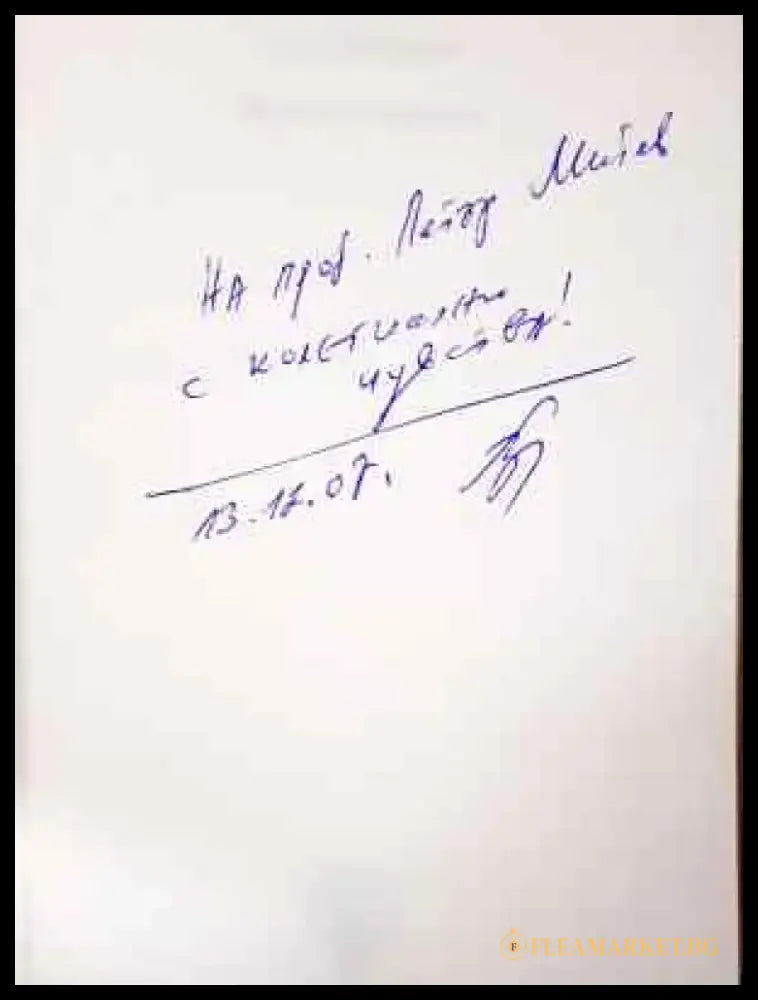 На проф. Петър Митев
с колегиални
чувства!
13.12.07.
FLEAMARKET.BG